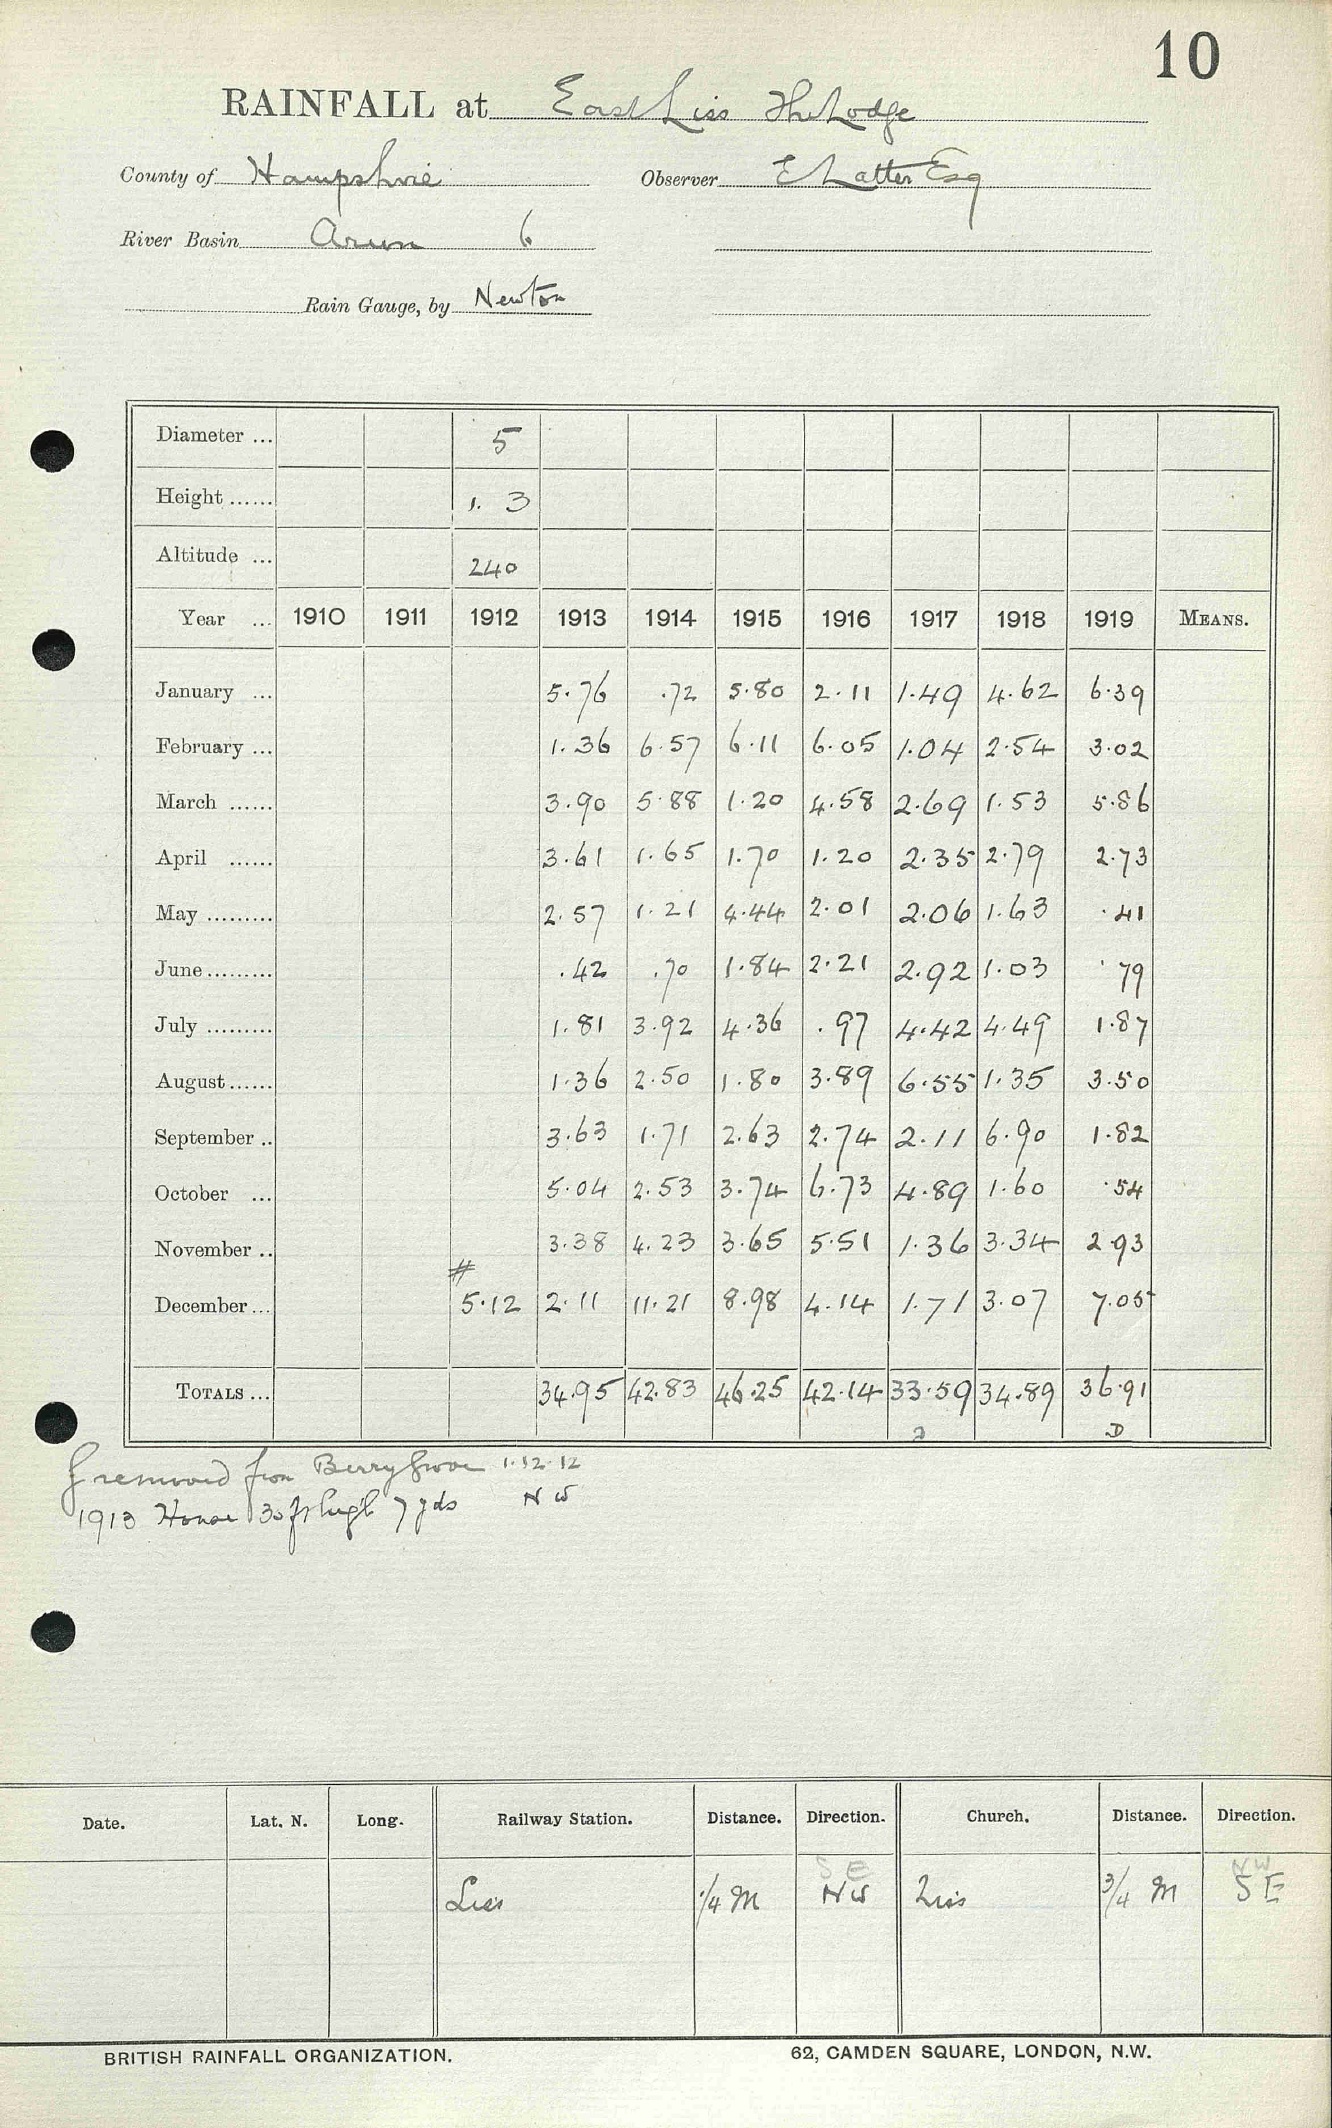 10
RAINFALL at East Liss The Lodge
County of Hampshire Observer E Latter Esq
River Basin Arun 6
Rain Gauge, by Newton
Diameter ... 5
Height ...... 1. 3
Altitude ... 240
Year ... 1910 1911 1912 1913 1914 1915 1916 1917 1918 1919 MEANS.
January ... 5.76 .72 5.80 2.11 1.49 4.62 6.39
February ... 1.36 6.57 6.11 6.05 1.04 2.54 3.02
March ...... 3.90 5.88 1.20 4.58 2.69 1.53 5.86
April ...... 3.61 1.65 1.70 1.20 2.35 2.79 2.73
May ......... 2.57 1.21 4.44 2.01 2.06 1.63 .41
June ......... .42 .70 1.84 2.21 2.92 1.03 .79
July ......... 1.81 3.92 4.36 .97 4.42 4.49 1.87
August ...... 1.36 2.50 1.80 3.89 6.55 1.35 3.50
September .. 3.63 1.71 2.63 2.74 2.11 6.90 1.82
October ... 5.04 2.53 3.74 6.73 4.89 1.60 .54
November .. 3.38 4.23 3.65 5.51 1.36 3.34 2.93
#
December ... 5.12 2.11 11.21 8.98 4.14 1.71 3.07 7.05
TOTALS ... 34.95 42.83 46.25 42.14 33.59 34.89 36.91
D D
G removed from Berry Grove 1.12.12
1913 House 30 ft high 7 yds NW
Date. Lat. N. Long. Railway Station. Distance. Direction. Church. Distance. Direction.
SE NW
Liss 1/4 M NW Liss 3/4 M SE
BRITISH RAINFALL ORGANIZATION. 62, CAMDEN SQUARE, LONDON, N.W.